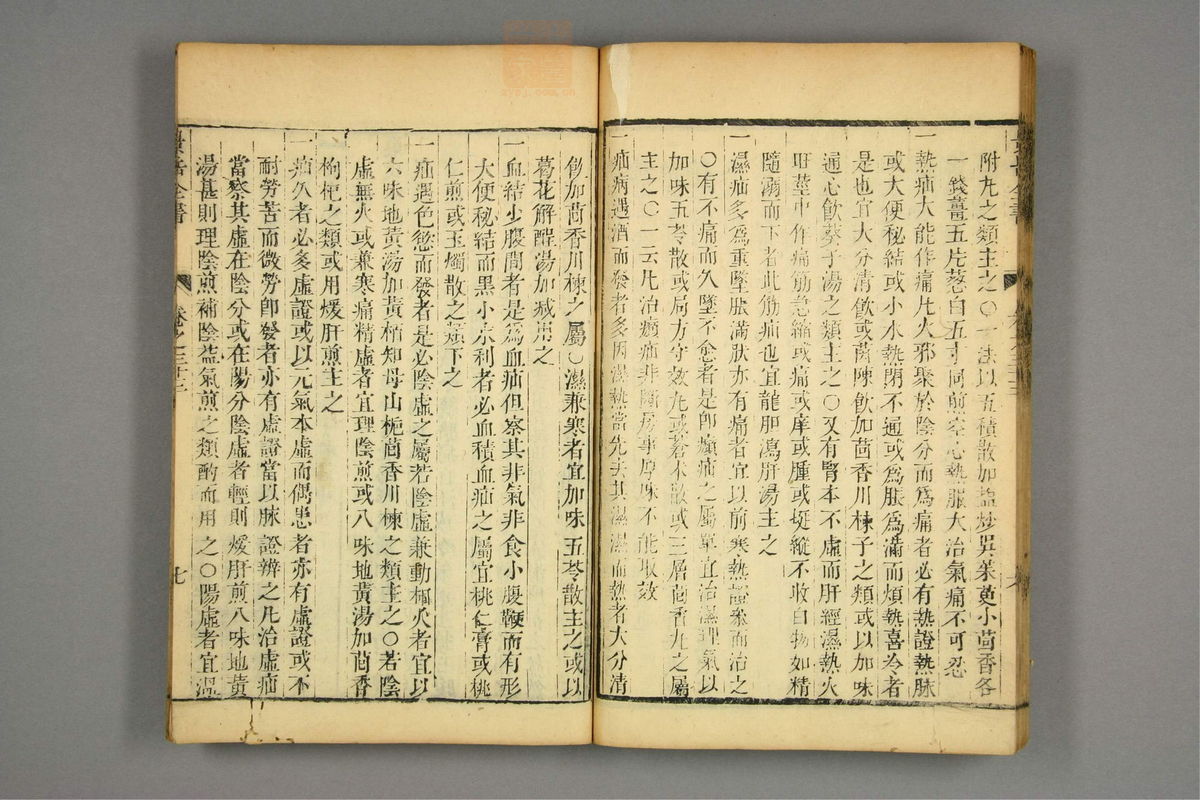 附丸之類主之○一法以五積散加鹽炒吳茱萸小茴香各
一錢薑五片蔥白五寸同煎空心熱服大治氣痛不可忍
一熱疝大能作痛凡火邪聚於陰分而爲痛者必有熱證熱脉
或大便秘結或小水熱閉不通或爲脹爲滿而煩熱喜冷者
是也宜大分清飲或茵陳飲加茴香川楝子之類或以加味
通心飲葵子湯之類主之○又有腎本不虛而肝經濕熱火
旺莖中作痛筋急縮或痛或痒或腫或挺縱不收白物如精
隨溺而下者此筋疝也宜龍胆瀉肝湯主之
一濕疝多爲重墜脹滿然亦有痛者宜以前寒熱證兼而治之
○有不痛而久墜不愈者是卽㿗疝之屬單宜治濕理氣以
加味五苓散或局方守效丸或蒼术散或三層茴香丸之屬
主之○一云凡治㿗疝非斷房事厚味不能取效
一疝病遇酒而發者多因濕熱當先去其濕濕而熱者大分清
飲加茴香川楝之屬○濕兼寒者宜加味五苓散主之或以
葛花解酲湯加減用之
一血結少腹間者是爲血疝但察其非氣非食小腹鞕而有形
大便秘結而黑小水利者必血積血疝之屬宜桃仁膏或桃
仁煎或玉燭散之類下之
一疝遇色慾而發者是必陰虛之屬若陰虛兼動相火者宜以
六味地黃湯加黃栢知母山梔茴香川楝之類主之○若陰
虛無火或兼寒痛精虛者宜理陰煎或八味地黃湯加茴香
枸杞之類或用煖肝煎主之
一疝久者必多虛證或以元氣本虛而偶患者亦有虛證或不
耐勞苦而微勞卽發者亦有虛證當以脉證辨之凡治虛疝
當察其虛在陰分或在陽分陰虛者輕則煖肝煎八味地黃
湯甚則理陰煎補陰益氣煎之類酌而用之○陽虛者宜溫
景岳全書
卷之三十三
七